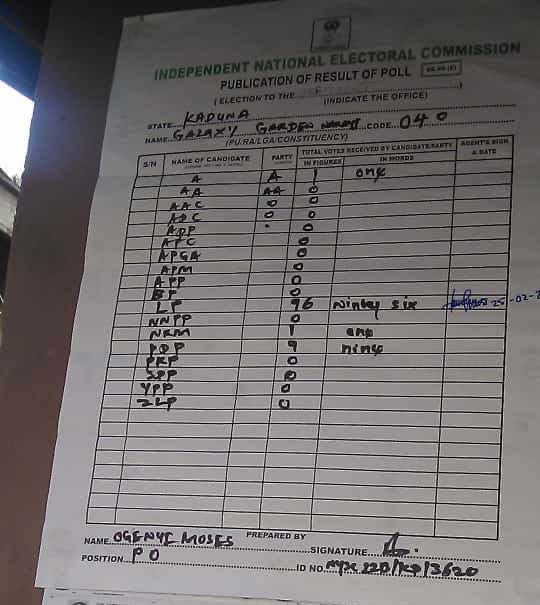 INDEPENDENT NATIONAL ELECTORAL COMMISSION
PUBLICATION OF RESULT OF POLL
(ELECTION TO THE (INDICATE THE OFFICE)
STATE KADUNA
NAME GALAXY GARDEN CODE 040
(PU/RA/LGA/CONSTITUENCY)
S/N NAME OF CANDIDATE PARTY TOTAL VOTES RECEIVED BY CANDIDATE/PARTY AGENT'S SIGN & DATE
IN FIGURES IN WORDS
A A 1 one
AA AA 0
AAC 0 0
ADC 0 0
ADP 0
APC 0
APGA 0
APM 0
APP 0
BP 0
LP 96 Ninety six 25-02-2
NNPP 0
NRM 1 one
PDP 9 nine
PRP 0
SPP 0
YPP 0
ZLP 0
PREPARED BY
NAME OGENYE MOSES SIGNATURE
POSITION PO ID NO